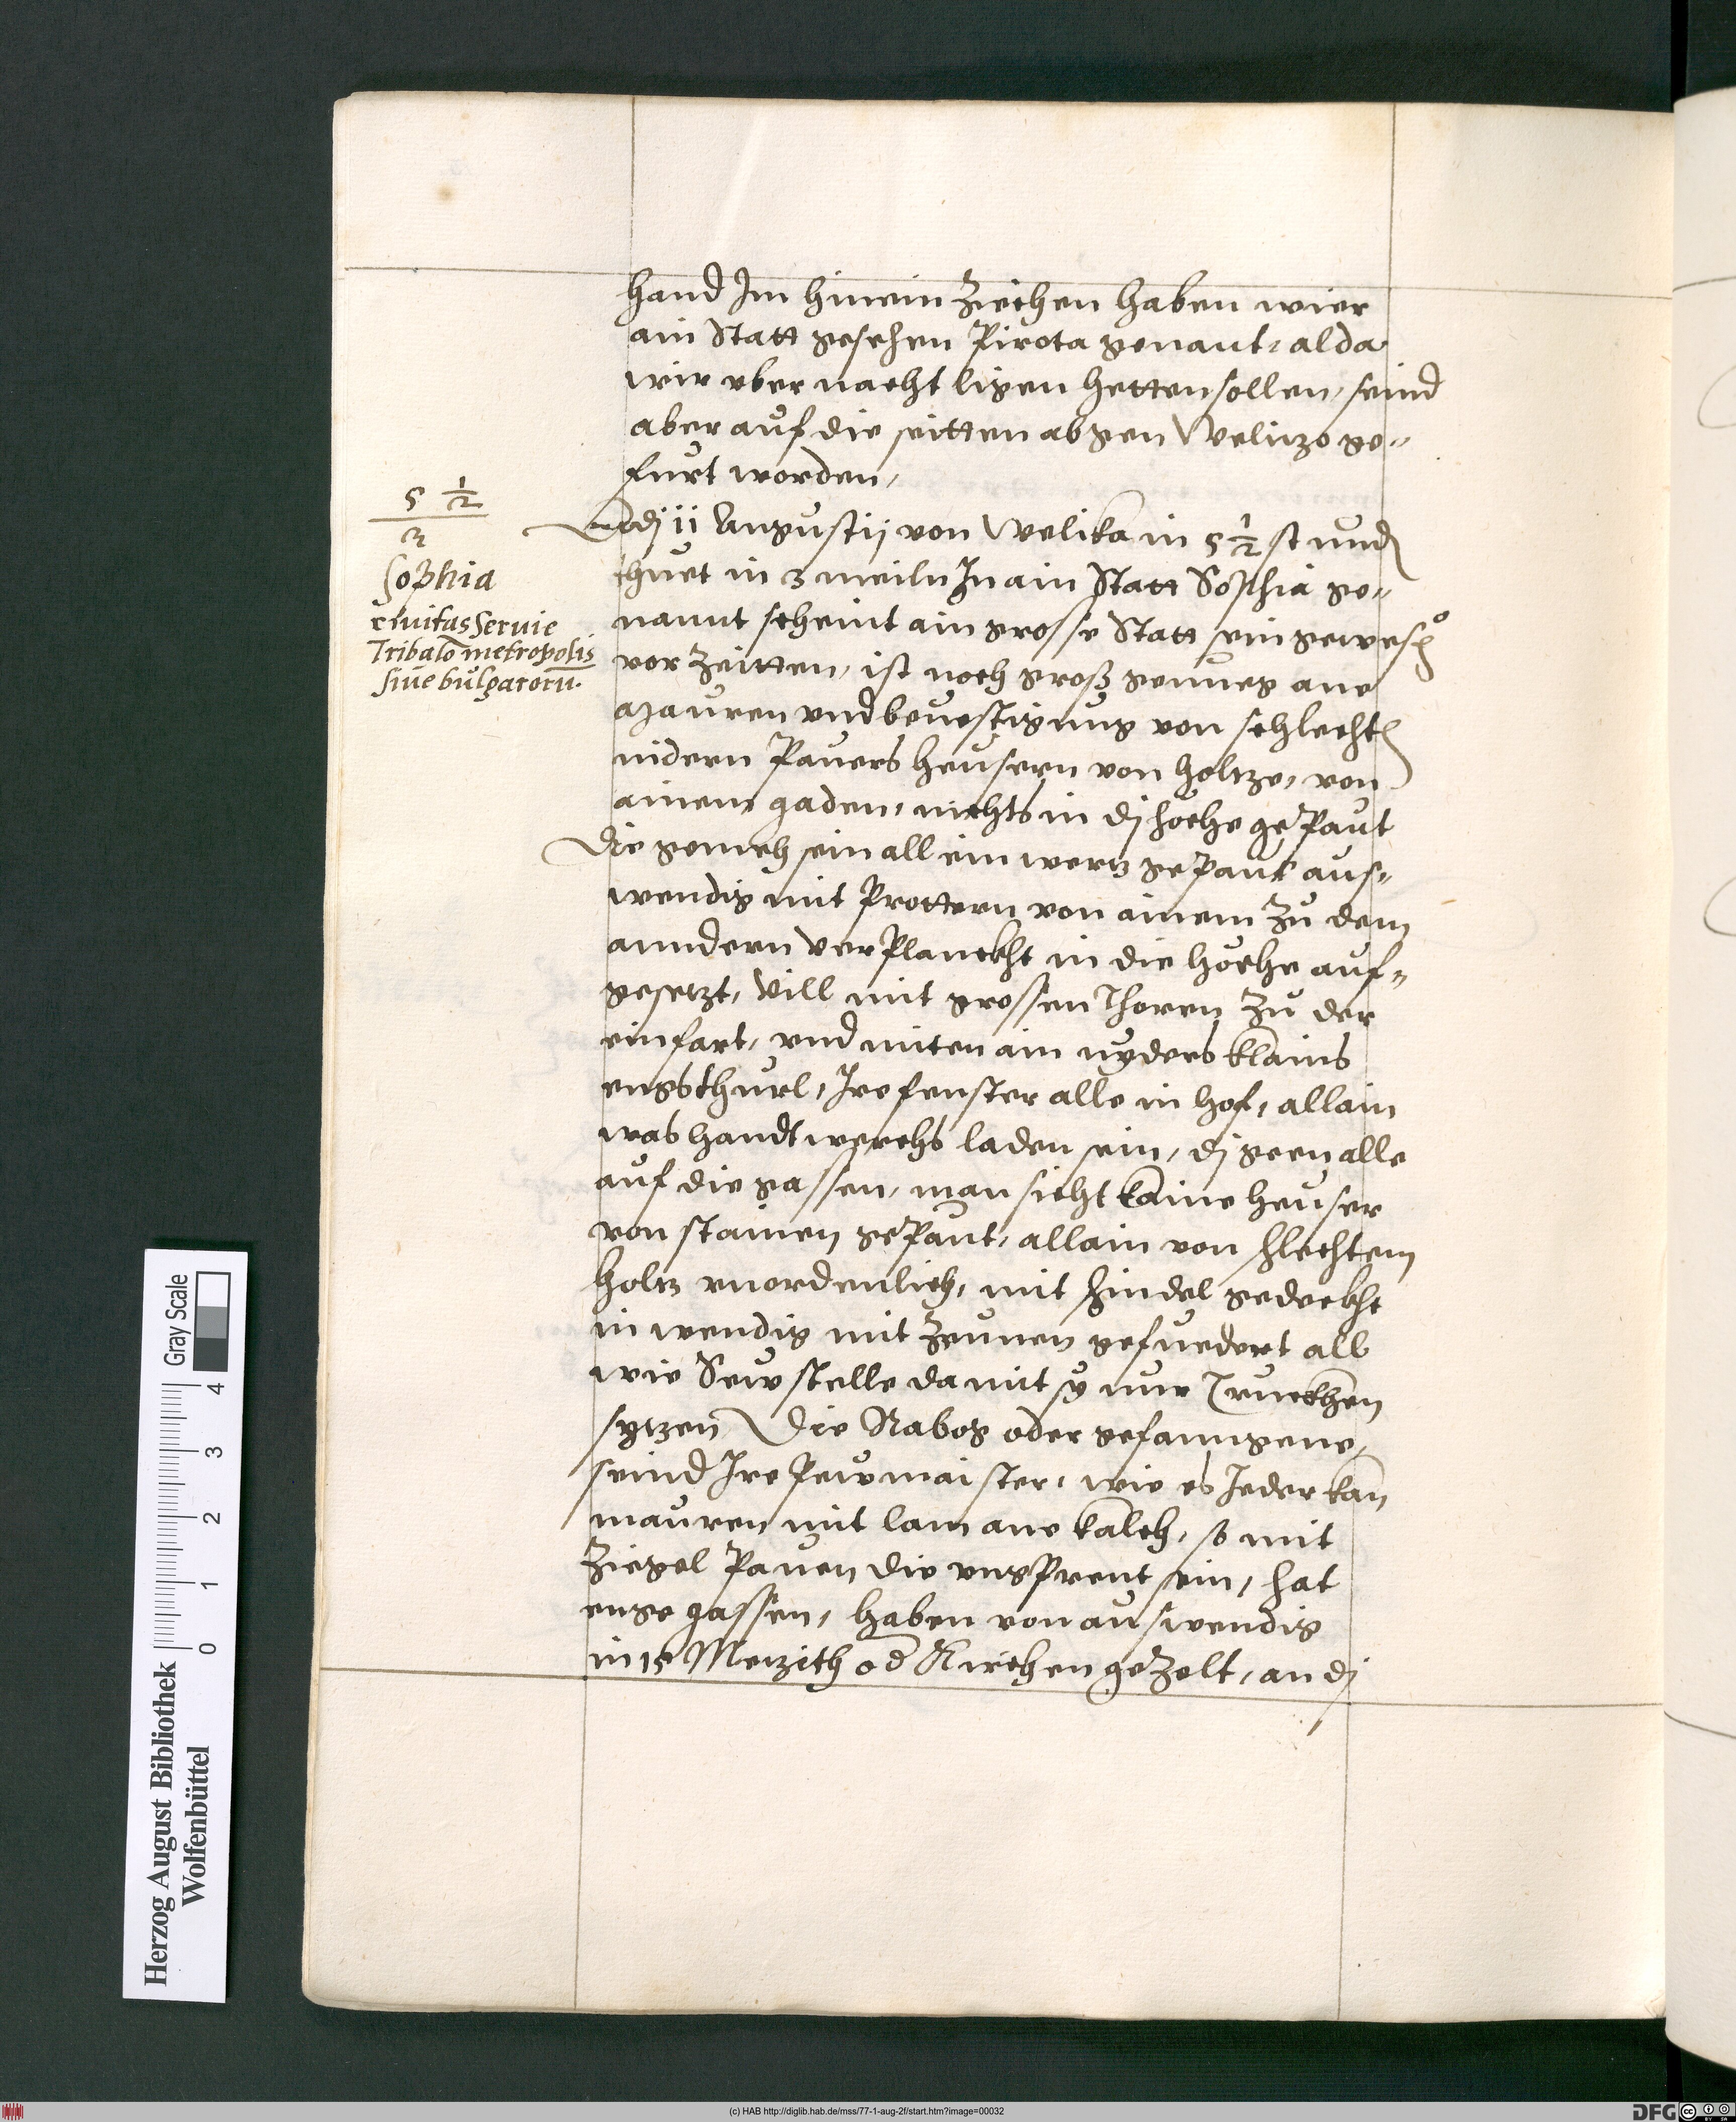 hand Im hinein ziechen haben wier
ain Statt gesehen Pirota genant, alda
wir vber nacht ligen hetten sollen, seind
aber auf die seitten ab gen Welizo ge-
furt worden,
5 1/2
3
Sophia
ciuitas Seruie
Tribalo metropolis
siue bulgaroru.
Adj 11 Augustij von Welika in 5 1/2 stund
thuet in 3 meiln In ain Statt Sophia ge-
nannt scheint ain grosse Statt sein gewesen
vor zeitten, ist noch groß genueg ane
Mauren vnd beuestigung von schlechten
nidern Paurs heusern von holtze, von
ainem gaden, nichts in dj hoche gepaut
Die gemeh sein all ein werz gepaut aus-
wendig mit Prettern von ainem zu dem
anndern verplanckht in die höche auf-
gesetzt, vill mit grossen Thoren zu der
einfart, vnd miten ain nyders klains
engs thurl, Ire fenster alle in hof, allain
was handtwerchs laden sein, dj geen alle
auf die gassen, man sicht kaine heuser
von stainen gepaut, allain von schlechtem
holtz vnordenlich, mit schindel gedeckht
inwendig mit zeunen gefuedert all
wie Sewstelle damit sy nur Truckhen
sytzen Die Rabog oder gefanngene,
seind Ire Pawmaister, wie es Jeder kan
mauren mit lam ane kalch, so mit
Ziegel Pauen die vngprent sein, hat
enge gassen, haben von auswendig
in 15 Metzith od Kirchen gezelt, an dj
Herzog August Bibliothek
Wolfenbüttel
Gray Scale
0 1 2 3 4
(c) HAB http://diglib.hab.de/mss/77-1-aug-2f/start.htm?image=00032
DFG